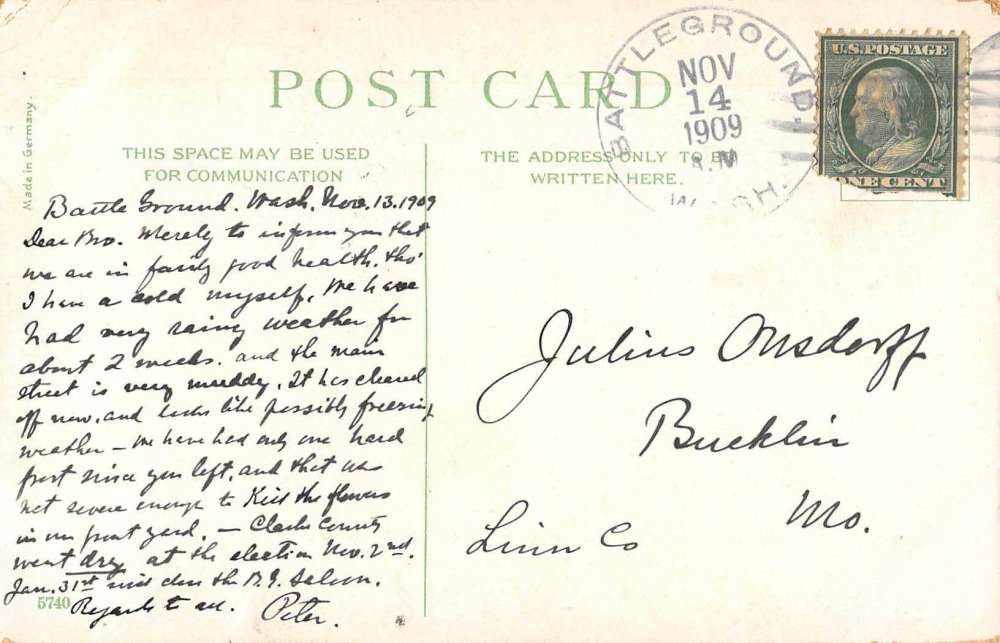 POST CARD
BATTLEGROUND.
NOV
14
1909
WASH.
U.S. POSTAGE
ONE CENT
Made in Germany.
THIS SPACE MAY BE USED
FOR COMMUNICATION
THE ADDRESS ONLY TO BE
WRITTEN HERE.
Battle Ground. Wash. Nov. 13. 1909
Dear Bro. Merely to inform you that
we are in fairly good health, tho'
I have a cold myself. We have
had very rainy weather for
about 2 weeks. and the main
street is very muddy. It has cleared
off now, and looks like possibly freezing
weather — we have had only one hard
frost since you left, and that was
not severe enough to Kill the flowers
in our front yard. — Clarke County
went dry at the election Nov. 2nd.
Jan. 31st will close the B.G. Saloon.
Regards to all. Peter.
5740
Julius Onsdorff
Bucklin
Mo.
Linn Co